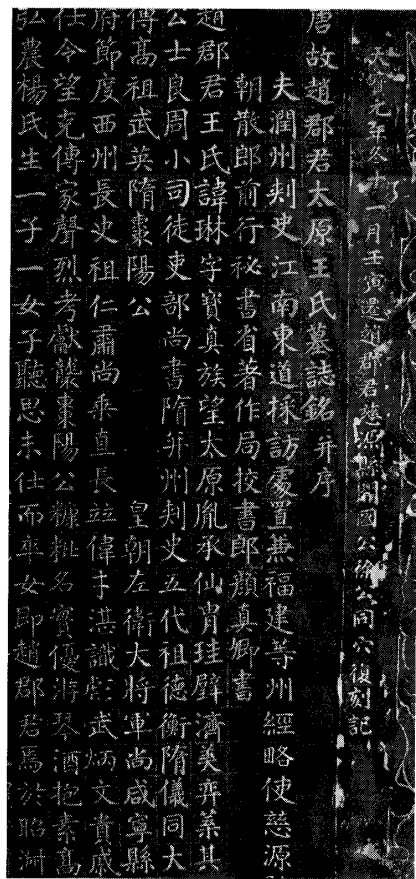 天寶元年冬十一月壬寅遷趙郡君慈源縣開國公徐公同穴復刻記
唐故趙郡君太原王氏墓誌銘并序
夫潤州刺史江南東道採訪處置兼福建等州經略使慈源
朝散郎前行祕書省著作局校書郎顏真卿書
趙郡君王氏諱琳字寶真族望太原胤承仙胄珪璧濟美弈葉其
公士良周小司徒吏部尚書隋并州刺史五代祖德衡隋儀同大
傅高祖武英隋棗陽公 皇朝左衛大將軍尚咸寧縣
府節度西州長史祖仁肅尚乘直長竝偉才湛識彪武炳文貴戚
仕令望克傳家聲烈考獻襲棗陽公糠粃名實優游琴酒抱素高
弘農楊氏生一子一女子聽思未仕而卒女即趙郡君焉於昭淑